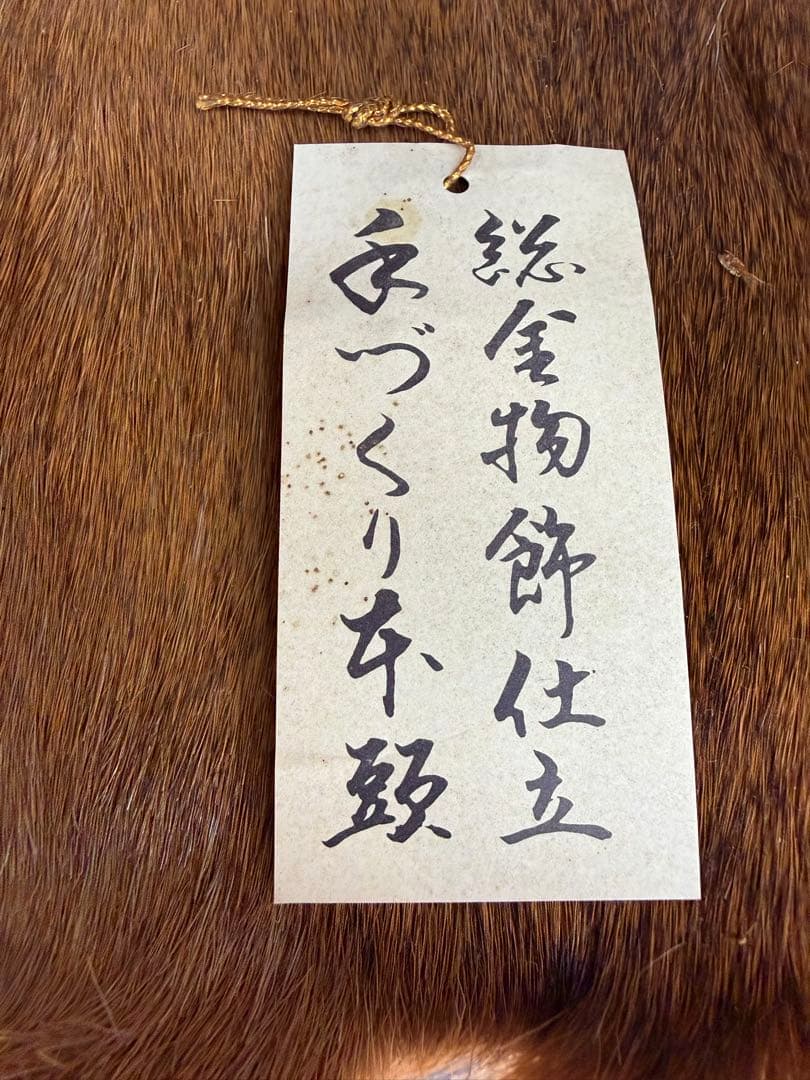 総金物飾仕立
手づくり本頭